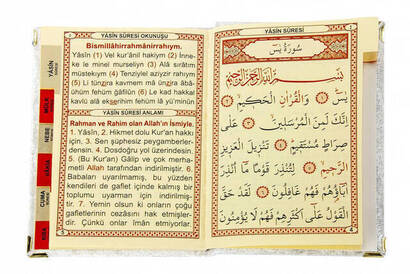 YÂSÎN SÛRESİ OKUNUŞU
Bismillâhirrahmânirrahıym.
Yâsîn (1) Vel kur'ânil hakiym (2) İnne-
ke le minel murseliyn (3) Alâ sırâtım
müstekıym (4) Tenziylel aziyzir rahiym
(5) Li tünzira kavmem mâ ünzira âbâ-
ühüm fehüm ğâfilûn (6) Le kad hakkal
kavlü alâ ekserihim fehüm lâ yü'minûn
YÂSÎN SÛRESİ ANLAMI
Rahman ve Rahim olan Allah'ın İsmiyle.
1. Yâsîn, 2. Hikmet dolu Kur'an hakkı
için, 3. Sen şüphesiz peygamberler-
densin. 4. Dosdoğru yol üzerindesin.
5. (Bu Kur'an) Gâlip ve çok merha-
metli Allah tarafından indirilmiştir. 6.
Babaları uyarılmamış, bu yüzden
kendileri de gaflet içinde kalmış bir
toplumu uyarman için indirilmiş-
tir. 7. Yemin olsun ki onların çoğu
gafletlerinin cezasını hak etmişler-
dir. Çünkü onlar îman etmiyorlar.
YÂSÎN
MÜLK
NEBE
CUMA
YÂSÎN SÛRESİ
سُورَةُ يٰسٓ
بِسْمِ اللهِ الرَّحْمٰنِ الرَّحِيمِ
يٰسٓ ﴿١﴾ وَالْقُرْاٰنِ الْحَكِيمِ ﴿٢﴾
اِنَّكَ لَمِنَ الْمُرْسَلِينَ ﴿٣﴾ عَلٰى
صِرَاطٍ مُسْتَقِيمٍ ﴿٤﴾ تَنْزِيلَ الْعَزِيزِ
الرَّحِيمِ ﴿٥﴾ لِتُنْذِرَ قَوْمًا مَٓا اُنْذِرَ
اٰبَٓاؤُهُمْ فَهُمْ غَافِلُونَ ﴿٦﴾ لَقَدْ حَقَّ
الْقَوْلُ عَلٰٓى اَكْثَرِهِمْ فَهُمْ لَا يُؤْمِنُونَ